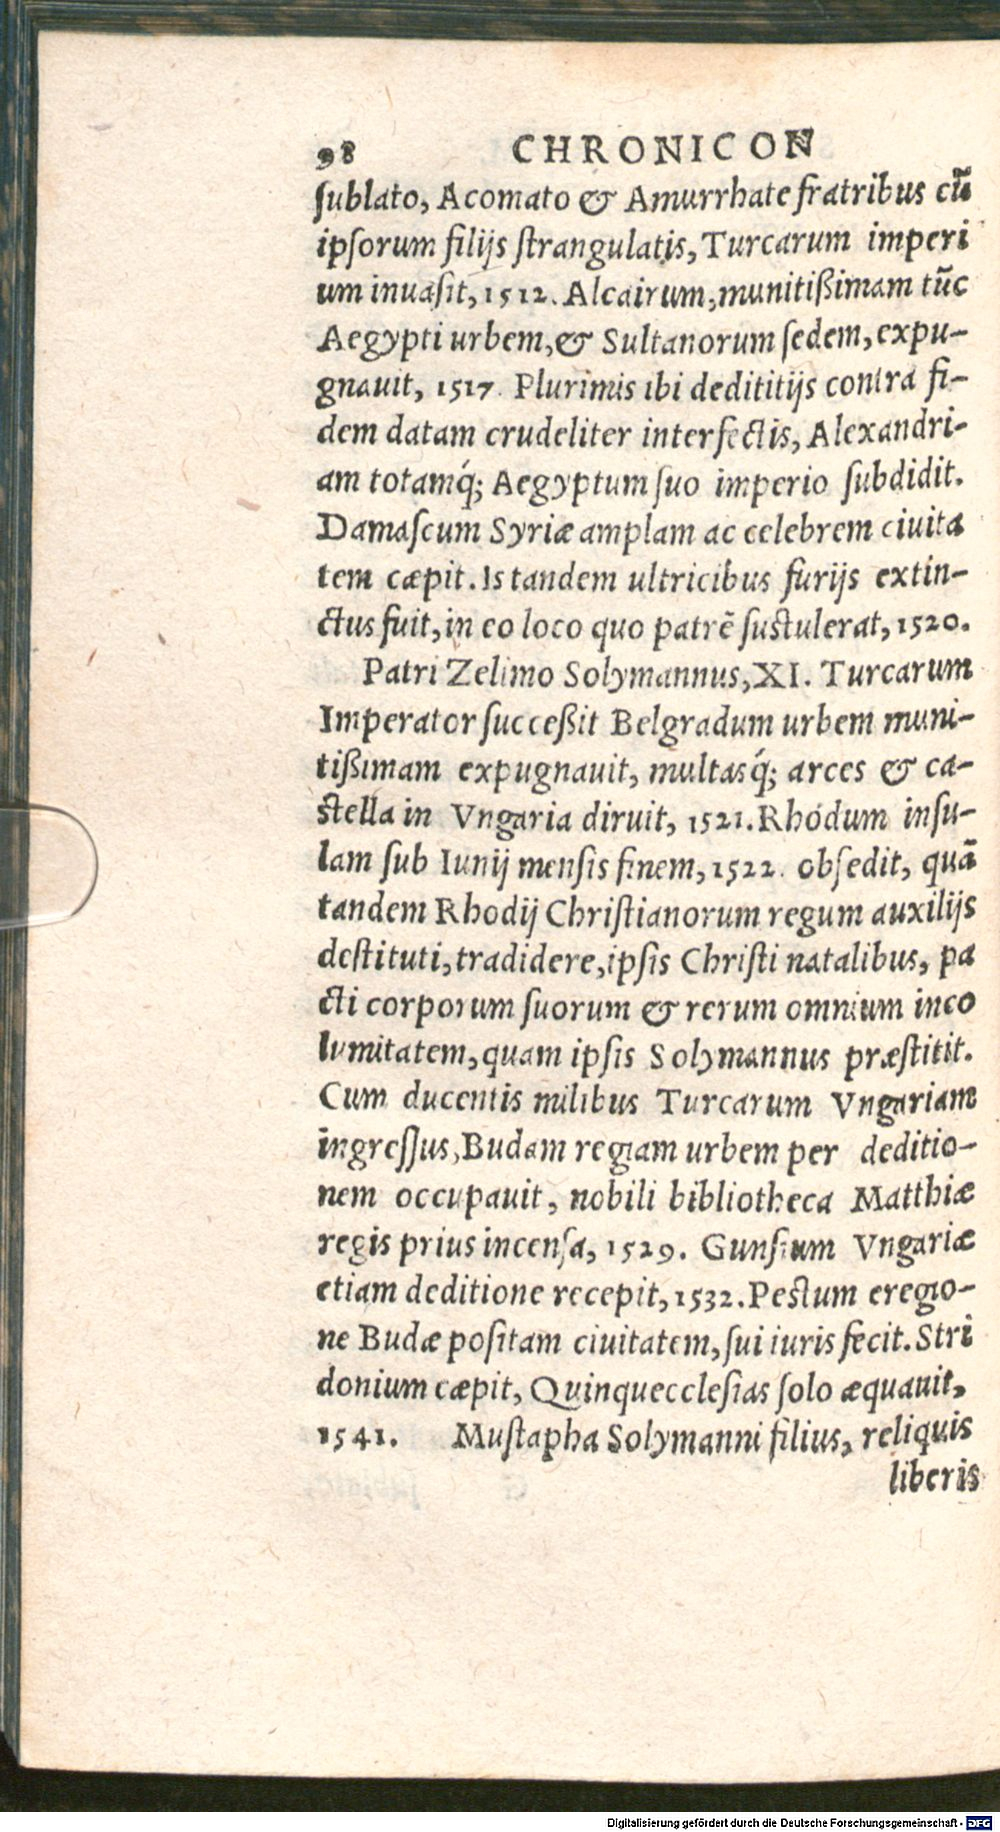 98 CHRONICON
ſublato, Acomato & Amurrhate fratribus cũ
ipſorum filijs ſtrangulatis, Turcarum imperi
um inuaſit, 1512. Alcairum, munitißimam tũc
Aegypti urbem, & Sultanorum ſedem, expu-
gnauit, 1517. Plurimis ibi dedititijs contra fi-
dem datam crudeliter interfectis, Alexandri-
am totamq́; Aegyptum ſuo imperio ſubdidit.
Damaſcum Syriæ amplam ac celebrem ciuita
tem cæpit. Is tandem ultricibus furijs extin-
ctus fuit, in eo loco quo patrē ſuſtulerat, 1520.
Patri Zelimo Solymannus, XI. Turcarum
Imperator ſucceßit Belgradum urbem muni-
tißimam expugnauit, multasq́; arces & ca-
ſtella in Vngaria diruit, 1521. Rhodum inſu-
lam ſub Iunij menſis finem, 1522. obſedit, quā
tandem Rhodij Chriſtianorum regum auxilijs
deſtituti, tradidere, ipſis Chriſti natalibus, pa
cti corporum ſuorum & rerum omnium inco
lumitatem, quam ipſis Solymannus præſtitit.
Cum ducentis milibus Turcarum Vngariam
ingreſſus, Budam regiam urbem per deditio-
nem occupauit, nobili bibliotheca Matthiæ
regis prius incenſa, 1529. Gunſium Vngariæ
etiam deditione recepit, 1532. Peſtum eregio-
ne Budæ poſitam ciuitatem, ſui iuris fecit. Stri
donium cæpit, Quinqueccleſias ſolo æquauit,
1541. Muſtapha Solymanni filius, reliquis
liberis
Digitalisierung gefördert durch die Deutsche Forschungsgemeinschaft - DFG